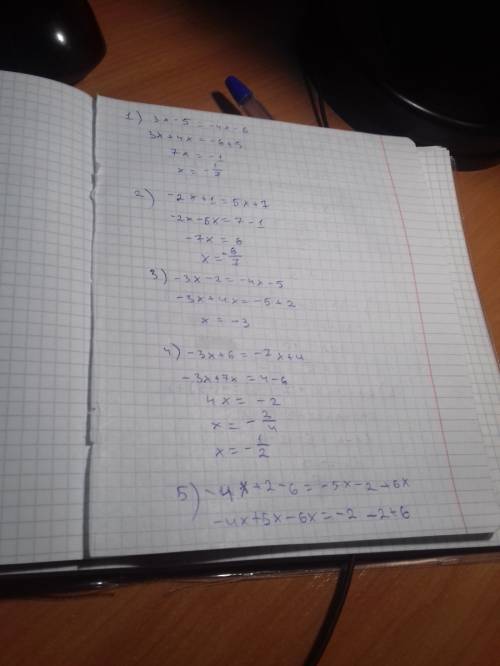 1) 3x-5=-4x-6
3x+4x=-6+5
7x=-1
x=-1/7
2) -2x+1=5x+7
-2x-5x=7-1
-7x=6
x=-6/7
3) -3x-2=-4x-5
-3x+4x=-5+2
x=-3
4) -3x+6=-7x+4
-3x+7x=4-6
4x=-2
x=-2/4
x=-1/2
5) -4x+2-6=-5x-2+6x
-4x+5x-6x=-2-2+6